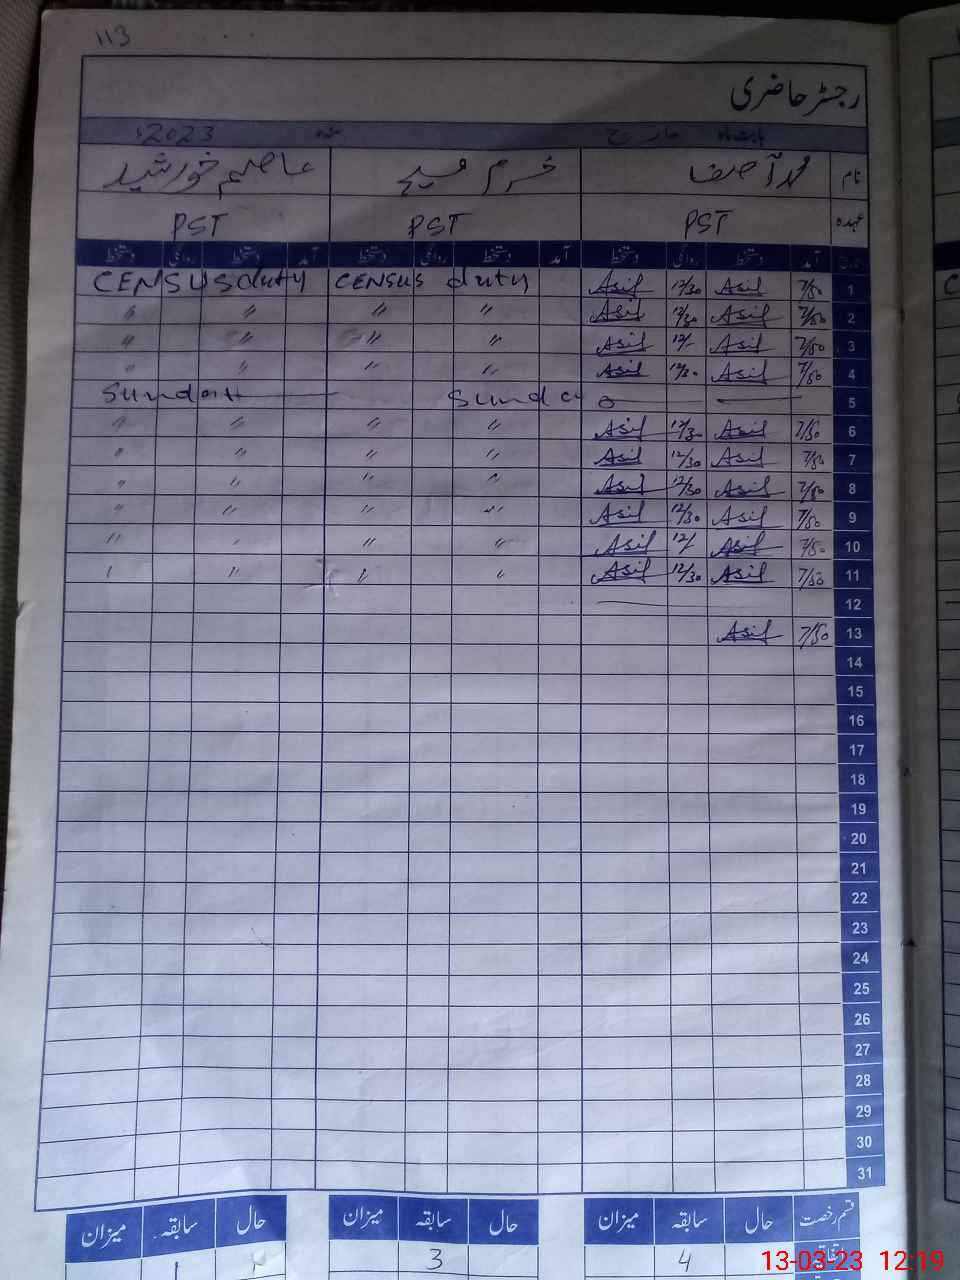 113
رجسٹر حاضری
بابت ماہ مارچ سنہ 2023ء
نام محمد آصف خرم مسیح عاصم خورشید
عہدہ PST PST PST
آمد دستخط روانگی دستخط آمد دستخط روانگی دستخط آمد دستخط روانگی دستخط
1 7/50 Asif 12/30 Asif CENSUS duty CENSUS duty
2 7/50 Asif 12/30 Asif 〃 〃 〃 〃
3 7/50 Asif 12/- Asif 〃 〃 〃 〃
4 7/50 Asif 12/30 Asif 〃 〃 〃 〃
5 Sunday
6 7/50 Asif 12/30 Asif 〃 〃 〃 〃
7 7/50 Asif 12/30 Asif 〃 〃 〃 〃
8 7/50 Asif 12/30 Asif 〃 〃 〃 〃
9 7/50 Asif 12/30 Asif 〃 〃 〃 〃
10 7/50 Asif 12/ Asif 〃 〃 〃 〃
11 7/50 Asif 12/30 Asif 〃 〃 〃 〃
12
13 7/50 Asif
14
15
16
17
18
19
20
21
22
23
24
25
26
27
28
29
30
31
قسم رخصت حال سابقہ میزان حال سابقہ میزان حال سابقہ میزان
4 3 1
13-03-23 12:19